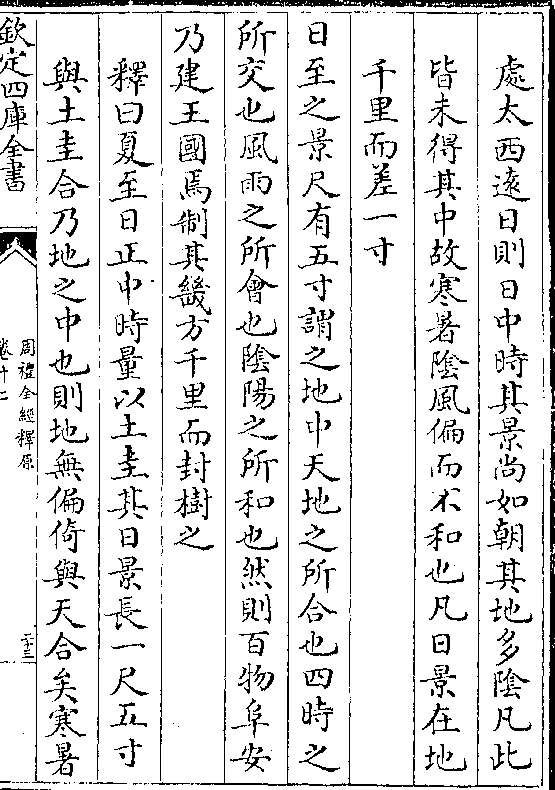 處太西逺日則日中時其景尚如朝其地多陰凡此
皆未得其中故寒暑陰風偏而不和也凡日景在地
千里而差一寸
日至之景尺有五寸謂之地中天地之所合也四時之
所交也風雨之所會也陰陽之所和也然則百物阜安
乃建王國焉制其畿方千里而封樹之
釋曰夏至日正中時量以土圭其日景長一尺五寸
與土圭合乃地之中也則地無偏倚與天合矣寒暑
欽定四庫全書
周禮全經釋原
卷十二
二十三